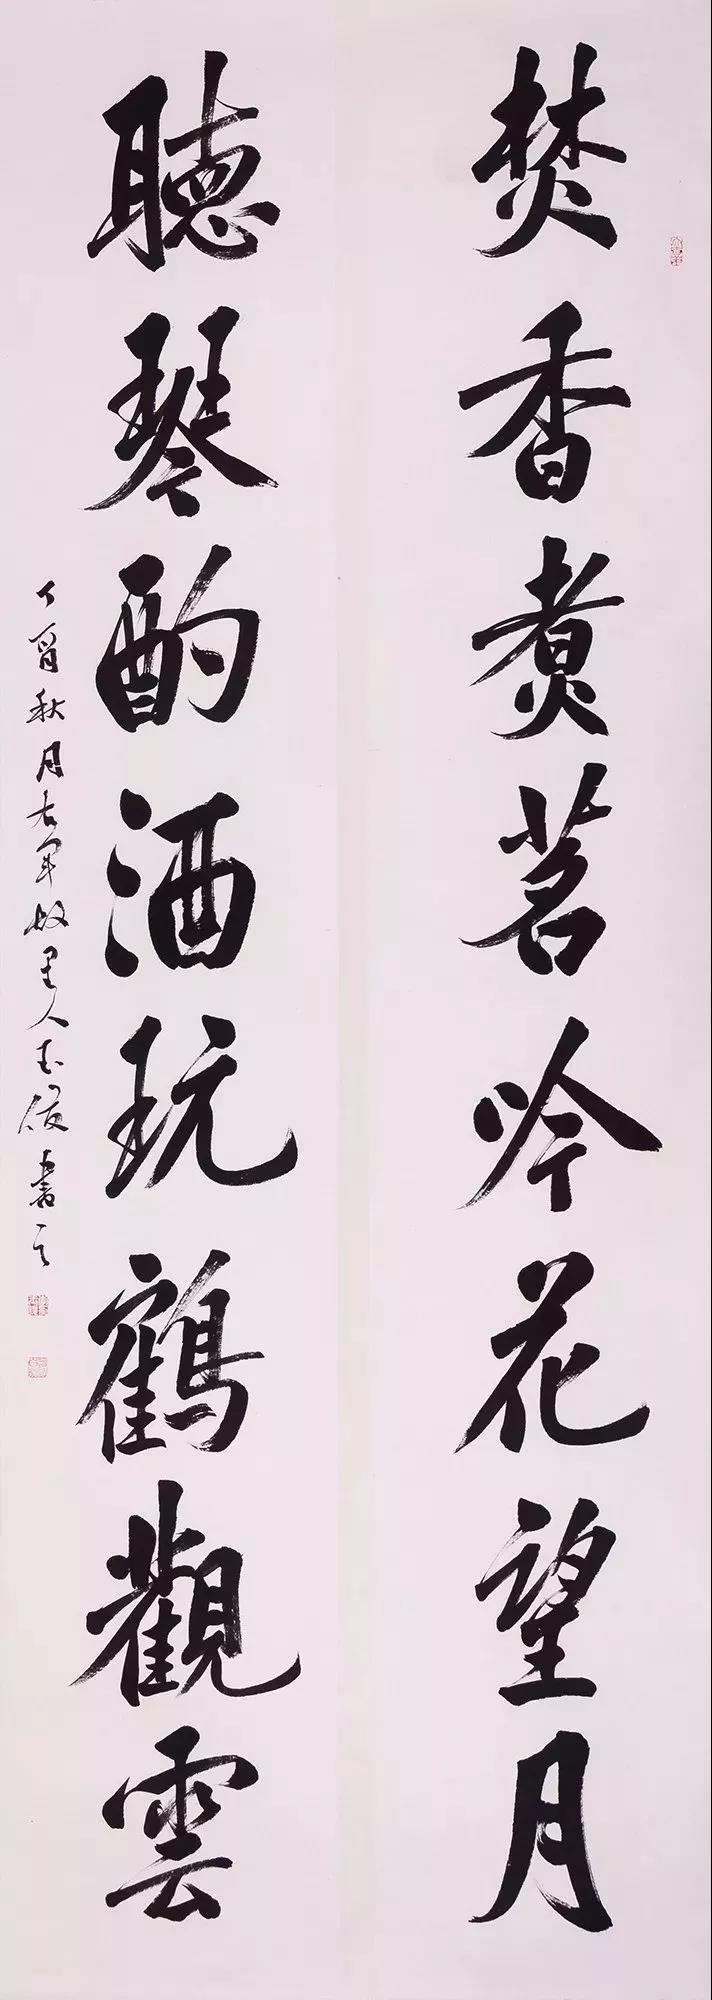 焚香煮茗吟花望月
聽琴酌酒玩鶴觀雲
丁酉秋月右軍故里人志俊書之